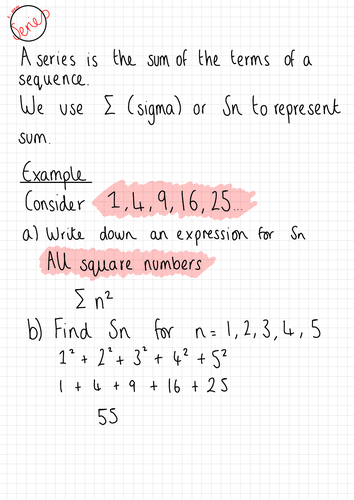 Series
A series is the sum of the terms of a
sequence.
We use Σ (sigma) or Sn to represent
sum.
Example
Consider 1, 4, 9, 16, 25...
a) Write down an expression for Sn
All square numbers
Σ n²
b) Find Sn for n = 1, 2, 3, 4, 5
1² + 2² + 3² + 4² + 5²
1 + 4 + 9 + 16 + 25
55